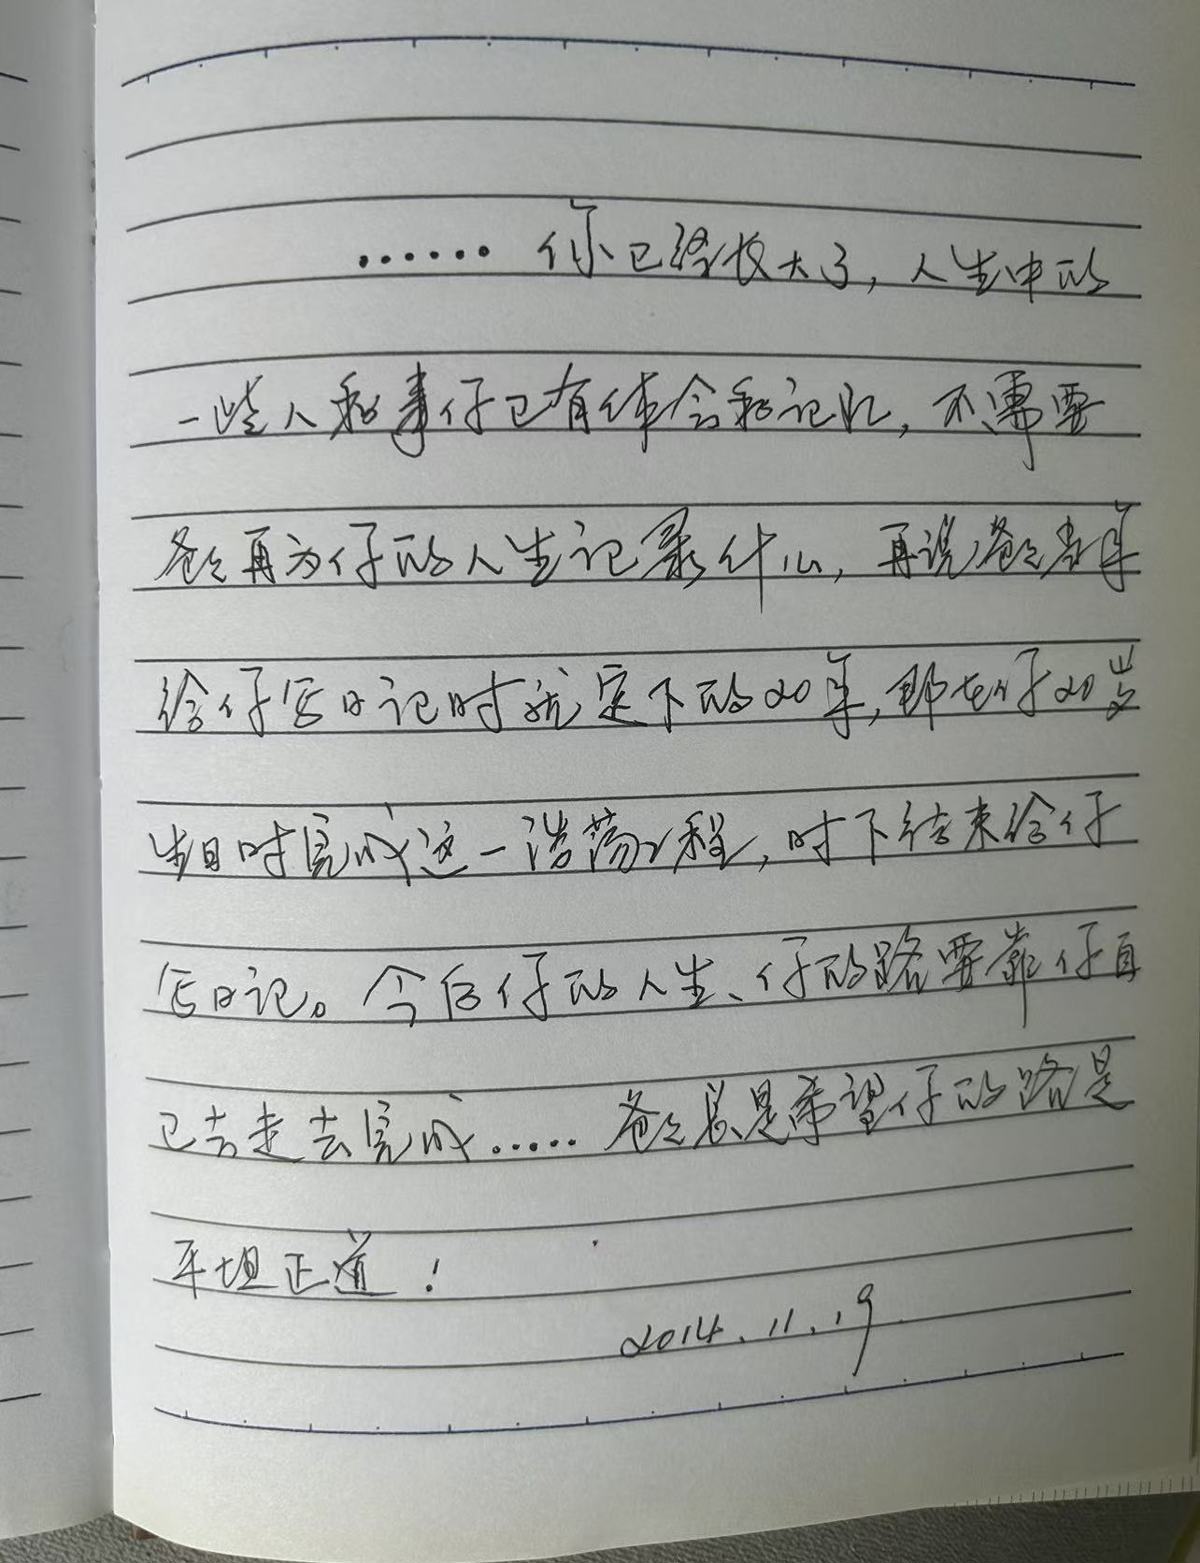 ……你已经长大了，人生中的
一些人和事仔已有体会和记忆，不需要
爸爸再为仔的人生记录什么，再说爸爸当年
给仔写日记时就定下的20年，即在仔20岁
生日时完成这一浩荡工程，时下结束给仔
写日记。今后仔的人生、仔的路要靠仔自
己去走去完成……爸爸总是希望仔的路是
平坦正道！
2014.11.19